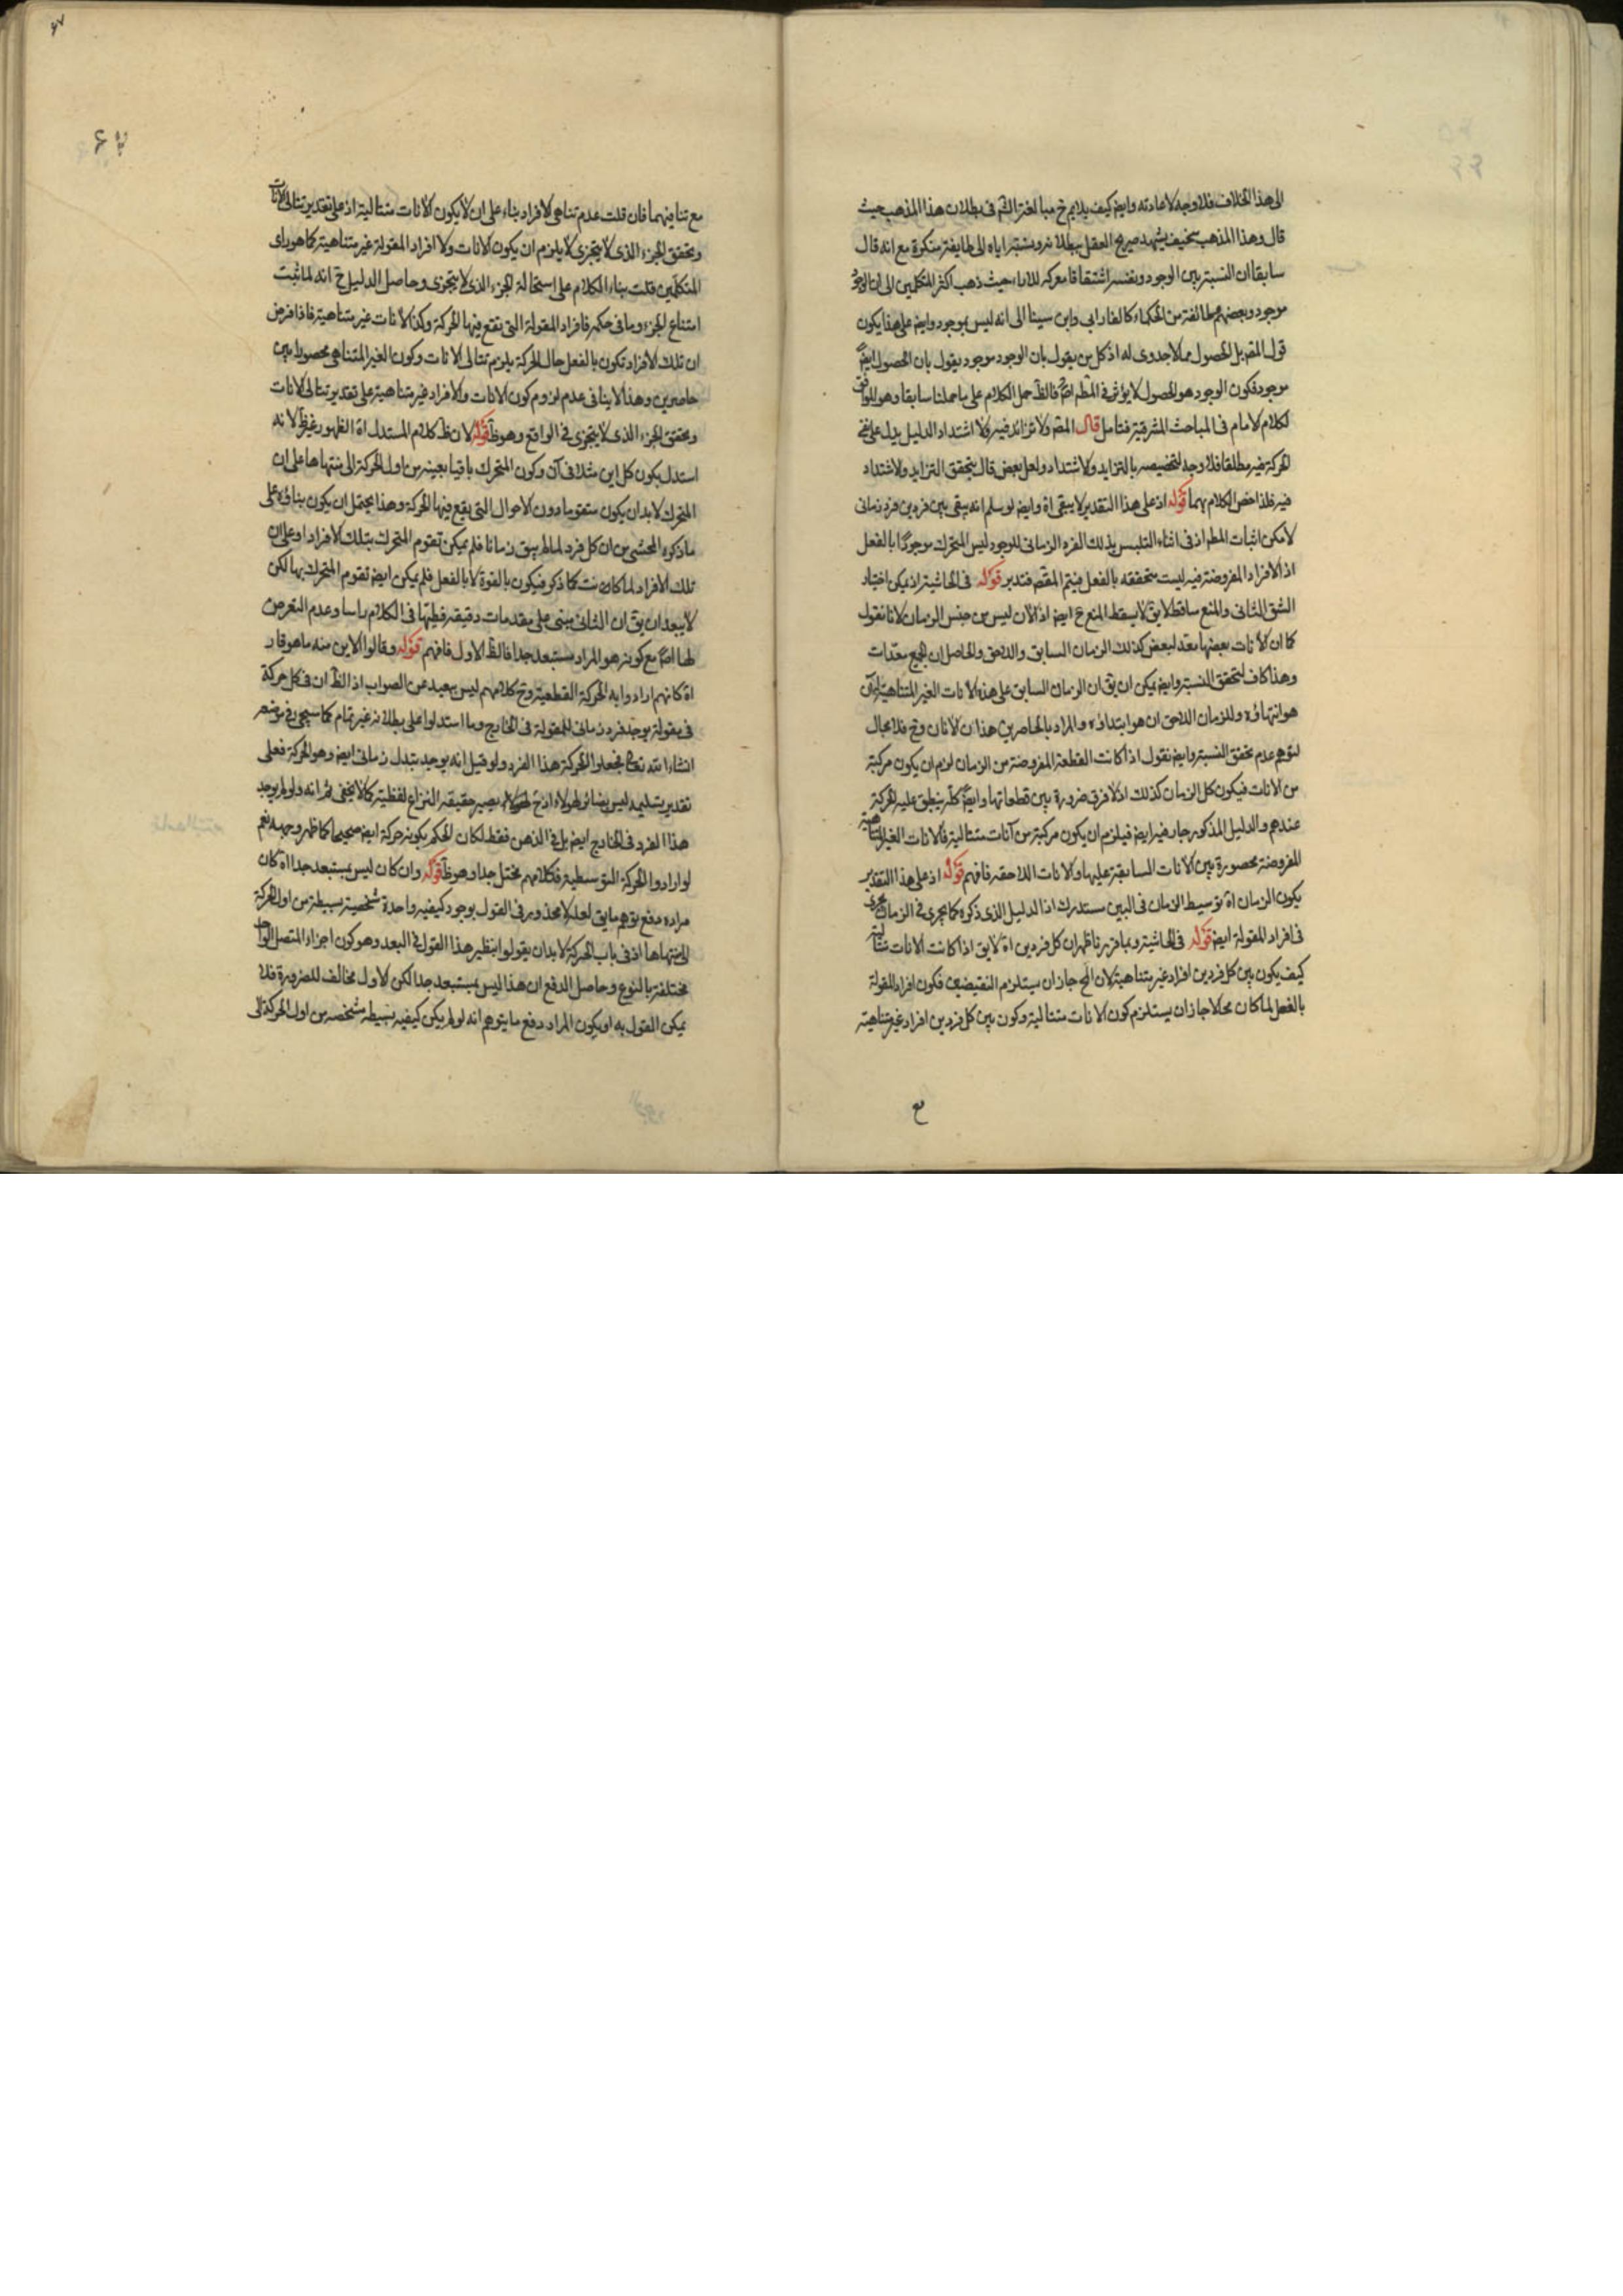 الى هذا الخلاف فلا وجه لاعادته وايض كيف يلايم ح مبالغة الشم فى بطلان هذا المذهب حيث
قال وهذا المذهب سخيف يشهد صريح العقل ببطلانه ونسبته اياه الى طايفة منكرة مع انه قال
سابقا ان النسبة بين الوجود ونفسه اشتقاقا معركه للاراء حيث ذهب اكثر المتكلمين الى ان الوجود
موجود وبعضهم طائفة من الحكماء كالفارابى وابن سينا الى انه ليس بموجود وايض على هذا يكون
قول المقم بل الحصول مما لا جدوى له اذ كل من يقول بان الوجود موجود يقول بان الحصول ايض
موجود فكون الوجود هو الحصول لا يؤثر فى المطم فالظ حمل الكلام على ما حملنا سابقا وهو الموافق
لكلام الامام فى المباحث المشرقية فتامل قال المقم ولا تزائد فيه ولا اشتداد الدليل يدل على نفى
الحركة فيه مطلقا فلا وجه لتخصيصه بالتزايد والاشتداد ولعل بعض قال بتحقق التزايد والاشتداد
فيه فلذا خص الكلام بهما قوله اذ على هذا التقدير لا يبقى اة وايض لو سلم انه يبقى بين فردين فرد زمانى
لامكن اثبات المطم اذ فى اثناء التلبس بذلك الفرد الزمانى للوجود ليس المتحرك موجودا بالفعل
اذ الافراد المفروضة فيه ليست متحققه بالفعل فيتم المقم فتدبر قوله فى الحاشية اذ يمكن اختيار
الشق الثانى والمنع ساقط لا يق لا يسقط المنع ح ايض اذ الان ليس من جنس الزمان لانا نقول
كما ان الانات بعضها معد لبعض كذلك الزمان السابق واللاحق والحاصل ان الجميع معدات
وهذا كاف لتحقق النسبة وايض يمكن ان يق ان الزمان السابق على هذه الانات الغير المتناهية ان
هو انتهاؤه وللزمان اللاحق ان هو ابتداؤه والمراد بالحاصرين هذان الانان وح فلا مجال
لتوهم عدم تحقق النسبة وايض نقول اذا كانت القطعة المفروضة من الزمان لزم ان يكون مركبة
من الانات فيكون كل الزمان كذلك اذ لا فرق ضرورة بين قطعاتها وايض كله ينطبق عليه الحركة
عندهم والدليل المذكور جار فيه ايض فيلزم ان يكون مركبة من آنات متتالية فالانات الغير المتناهية
المفروضة محصورة بين الانات السابقة عليها والانات اللاحقه فافهم قوله اذ على هذا التقدير
يكون الزمان اة توسيط الزمان فى البين مستدرك اذ الدليل الذى ذكره كما يجرى فى الزمان يجرى
فى افراد المقولة ايض قوله فى الحاشية وبما قررنا ظهر ان كل فردين اة لا يق اذا كانت الانات متتالية
كيف يكون بين كل فردين افراد غير متناهية لان المح جاز ان يستلزم النقيضين فكون افراد المقولة
بالفعل لما كان محالا جاز ان يستلزم كون الانات متتالية وكون بين كل فردين افراد غير متناهية
مع
مع تنافيهما فان قلت عدم تناهى الافراد بناء على ان لا يكون الانات متتالية اذ على تقدير تتالى الانات
وتحقق الجزء الذى لا يتجزى لا يلزم ان يكون الانات ولا افراد المقولة غير متناهية كما هو راى
المتكلمين قلت بناء الكلام على استحالة الجزء الذى لا يتجزى وحاصل الدليل ح انه لما ثبت
امتناع الجزء وما فى حكمه فافراد المقولة التى تقع فيها الحركة وكذا الانات غير متناهية فاذا فرض
ان تلك الافراد تكون بالفعل حال الحركة يلزم تتالى الانات وكون الغير المتناهى محصورا بين
حاصرين وهذا لا ينافى عدم لزوم كون الانات والافراد غير متناهية على تقدير تتالى الانات
وتحقق الجزء الذى لا يتجزى فى الواقع وهو ظ قوله لان ظ كلام المستدل اة الظهور غير ظ لانه
استدل بكون كل اين مثلا فى آن وكون المتحرك باقيا بعينه من اول الحركة الى منتهاها على ان
المتحرك لا بد ان يكون متقوما دون الاحوال التى يقع فيها الحركة وهذا يحتمل ان يكون بناؤه على
ما ذكره المحشى من ان كل فرد لما لم يبق زمانا فلم يمكن تقوم المتحرك بتلك الافراد او على ان
تلك الافراد لما كان نت كما ذكر فيكون بالقوة لا بالفعل فلم يمكن ايض تقوم المتحرك بها لكن
لا يبعد ان يق ان الثانى مبنى على مقدمات دقيقه فطيها فى الكلام راسا وعدم التعرض
لها اصلا مع كونه هو المراد مستبعد جدا فالظ الاول فافهم قوله وقالوا الاين منه ما هو قار
اة كانهم ارادوا به الحركة القطعية وح كلامهم ليس ببعيد عن الصواب اذ الظ ان فى كل حركة
فى مقولة يوجد فرد زمانى للمقولة فى الخارج وما استدلوا على بطلانه غير تمام كما سيجئ فى موضعه
انشاء الله تعالى فجعلوا الحركة هذا الفرد ولو قيل انه يوجد بتدل زمانى ايض وهو الحركة فعلى
تقدير تسليمه ليس بضائر لهؤلاء اذ ح يصير حقيقه النزاع لفظية كما لا يخفى ثم انه ولو لم يوجد
هذا الفرد فى الخارج ايض بل فى الذهن فقط لكان الحكم بكونه حركة ايض صحيحا كما ظهر وجهه نعم
لو ارادوا الحركة التوسطية فكلامهم مختل جدا وهو ظ قوله وان كان ليس بمستبعد جدا اة كان
مراده دفع توهم ما يق لعله لا محذور فى القول بوجود كيفيه واحدة شخصية بسيطة من اول الحركة
الى منتهاها اذ فى باب الحركة لا بد ان يقولوا بنظير هذا القول فى البعد وهو كون اجزاء المتصل الواحد
مختلفة بالنوع وحاصل الدفع ان هذا ليس بمستبعد جدا لكن الاول مخالف للضرورة فلا
يمكن القول به او يكون المراد دفع ما يتوهم انه لو لم يكن كيفيه بسيطه شخصه من اول الحركة الى